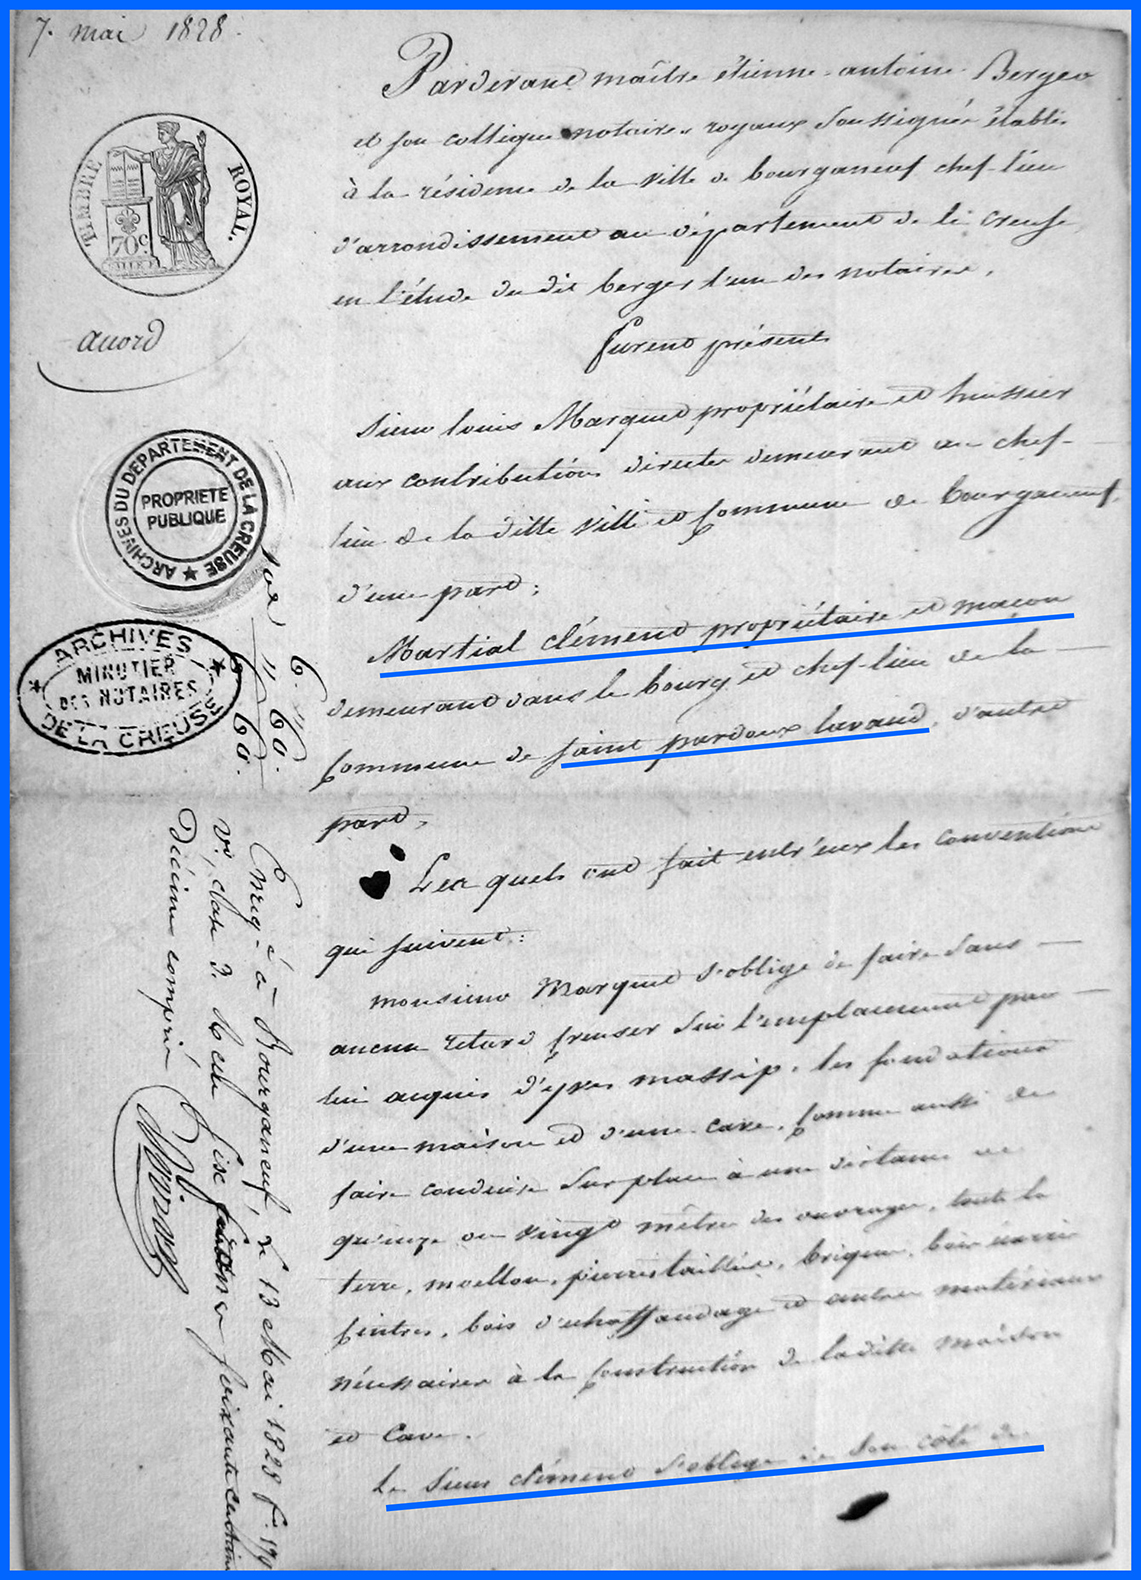 7. mai 1828.
TIMBRE ROYAL.
70c
acord
ARCHIVES DU DEPARTEMENT DE LA CREUSE
PROPRIETE
PUBLIQUE
ARCHIVES
MINUTIER
DES NOTAIRES
DE LA CREUSE
Pardevant maître étienne antoine Berger
et son collègue notaires royaux soussignés établis
à la résidence de la ville de bourganeuf chef-lieu
d'arrondissement au département de la creuse
en l'étude du dit berger l'un des notaires,
Furent présents
Sieur louis Marquet propriétaire et huissier
aux contributions directes demeurant au chef-
lieu de la ditte ville et commune de bourganeuf,
d'une part;
Martial clément propriétaire et maçon
demeurant dans le bourg et chef-lieu de la
commune de saint pardoux lavaud, d'autre
part,
Les quels ont fait entr'eux les conventions
qui suivent:
monsieur Marquet s'oblige de faire sans
aucun retard creuser sur l'emplacement par
lui acquis d'yves massip, les fondations
d'une maison et d'une cave, comme aussi de
faire conduire sur place à une distance de
quinze ou vingt mètres des ouvrages, toute la
terre, moellon, pierres taillées, briques, bois
cintres, bois d'echaffaudage et autres matériaux
nécessaires à la construction de laditte maison
et cave.
Le sieur clément s'oblige de son côté de
6. 60.
6 60.
Enreg. é à Bourganeuf, le 13 Mai 1828 f.
vo. case 3. Reçu six francs soixante centimes
décime compris